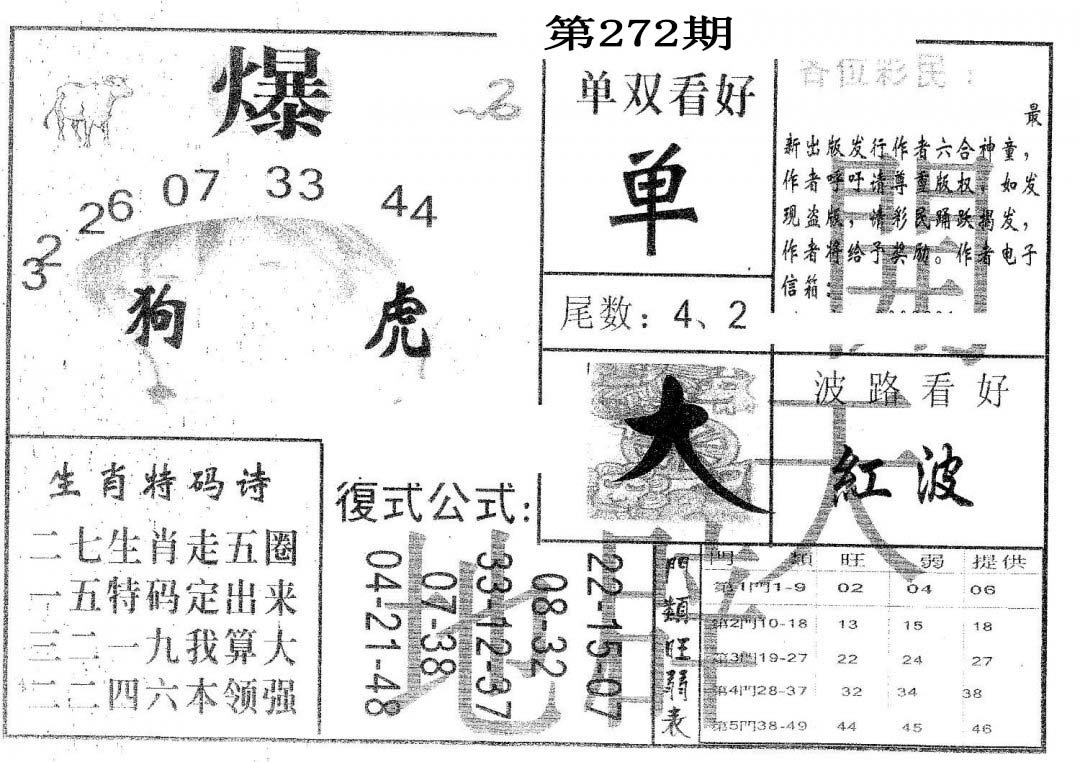 第272期
爆
32
26
07
33
44
狗
虎
单双看好
单
尾数：4、2
各位彩民：
最
新出版发行作者六合神童，
作者呼吁请尊重版权，如发
现盗版，情彩民踊跃揭发，
作者将给予奖励。作者电子
信箱：
大
波路看好
紅波
生肖特码诗
二七生肖走五圈
一五特码定出来
三二一九我算大
二二四六本领强
復式公式：
22-15-07
08-32
33-12-37
07-38
04-21-48
門類旺弱表
門類 旺 弱 提供
第1門1-9 02 04 06
第2門10-18 13 15 18
第3門19-27 22 24 27
第4門28-37 32 34 38
第5門38-49 44 45 46